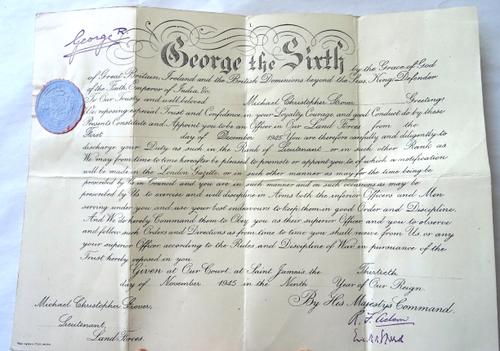 George R.
George the Sixth by the Grace of God
of Great Britain, Ireland and the British Dominions beyond the Seas, King, Defender
of the Faith, Emperor of India, &c.
To Our Trusty and well beloved Michael Christopher Greeting:
We reposing especial Trust and Confidence in your Loyalty, Courage, and good Conduct do by these
Presents Constitute and Appoint you to be an Officer in Our Land Forces from the
First day of December 1945. You are therefore carefully and diligently to
discharge your Duty as such in the Rank of Lieutenant or in such other Rank as
We may from time to time hereafter be pleased to promote or appoint you to of which a notification
will be made in the London Gazette, or in such other manner as may for the time being be
prescribed by Us in Council, and you are in such manner and on such occasions as may be
prescribed by Us to exercise and well discipline in Arms both the inferior Officers and Men
serving under you and use your best endeavour to keep them in good Order and Discipline.
And We do hereby Command them to Obey you as their superior Officer and you to observe
and follow such Orders and Directions as from time to time you shall receive from Us, or any
your superior Officer, according to the Rules and Discipline of War, in pursuance of the
Trust hereby reposed in you.
Given at Our Court, at Saint James's, the Thirtieth
day of November 1945 in the Ninth Year of Our Reign
By His Majesty's Command.
Michael Christopher
Lieutenant,
Land Forces.